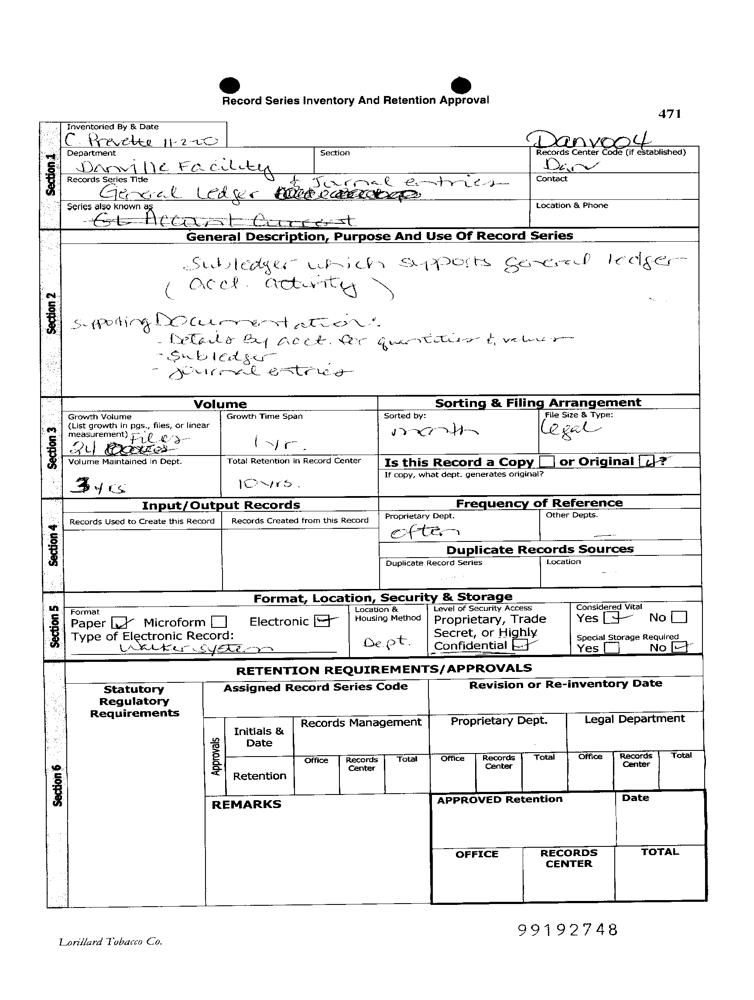 Record Series Inventory And Retention Approval
471
Section 1
Inventoried By & Date
C. Prevette 11-2-00
Danv004
Records Center Code (if established)
Department
Danville Facility
Section
Danv
Records Series Title
General Ledger & Journal entries
Contact
Series also known as
GL Account Current
Location & Phone
Section 2
General Description, Purpose And Use Of Record Series
Subledger which supports general ledger
(acct. activity)
Supporting Documentation:
- Details By acct. for quantities & values
- Subledger
- journal entries
Section 3
Volume
Growth Volume
(List growth in pgs., files, or linear
measurement) Files
24
Growth Time Span
1 yr.
Volume Maintained in Dept.
3 yrs
Total Retention in Record Center
10 yrs.
Sorting & Filing Arrangement
Sorted by:
month
File Size & Type:
Legal
Is this Record a Copy or Original ?
If copy, what dept. generates original?
Section 4
Input/Output Records
Records Used to Create this Record
Records Created from this Record
Frequency of Reference
Proprietary Dept.
often
Other Depts.
Duplicate Records Sources
Duplicate Record Series
Location
Section 5
Format, Location, Security & Storage
Format
Paper Microform Electronic
Type of Electronic Record:
Walker system
Location &
Housing Method
Dept.
Level of Security Access
Proprietary, Trade
Secret, or Highly
Confidential
Considered Vital
Yes No
Special Storage Required
Yes No
Section 6
RETENTION REQUIREMENTS/APPROVALS
Statutory
Regulatory
Requirements
Assigned Record Series Code
Revision or Re-inventory Date
Approvals
Initials &
Date
Retention
Records Management
Office
Records
Center
Total
Proprietary Dept.
Office
Records
Center
Total
Legal Department
Office
Records
Center
Total
REMARKS
APPROVED Retention
Date
OFFICE
RECORDS
CENTER
TOTAL
Lorillard Tobacco Co.
99192748